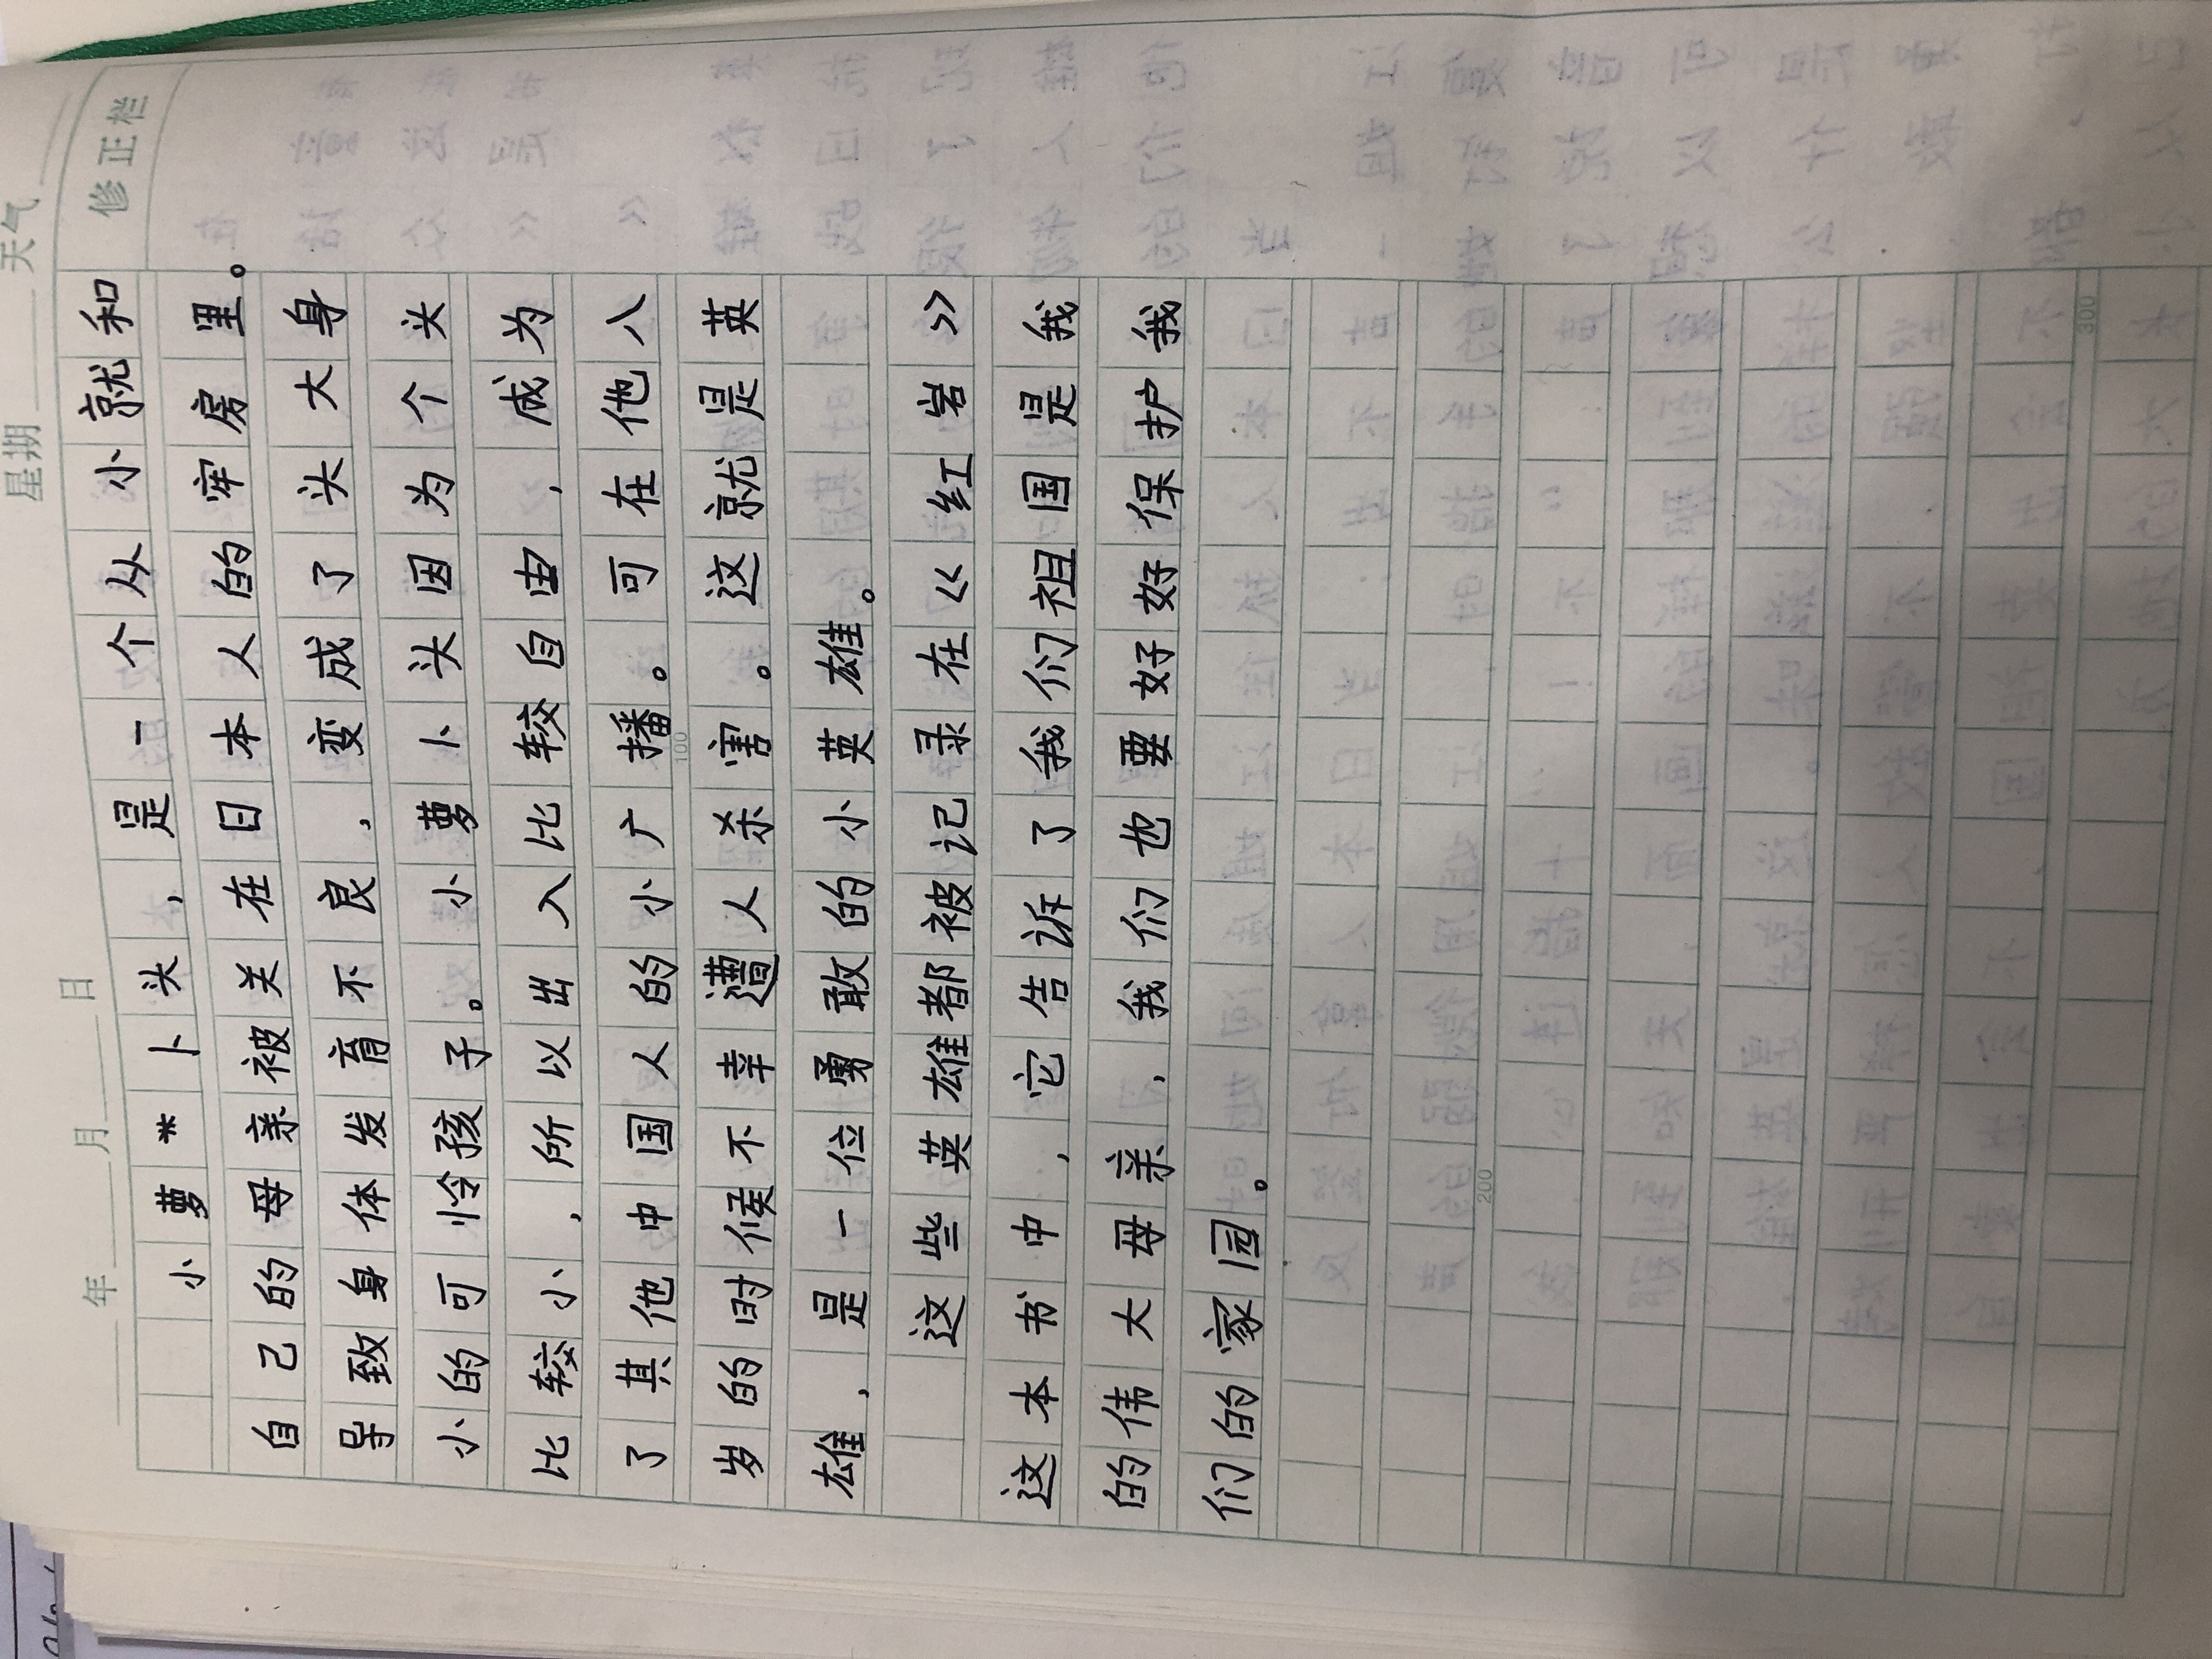 年 月 日 星期 天气
修正栏
小萝*卜头，是一个从小就和
自己的母亲被关在日本人的牢房里。
导致身体发育不良，变成了头大身
小的可怜孩子。小萝卜头因为个头
比较小，所以出入比较自由，成为
了其他中国人的小广播。可在他八
岁的时候不幸遭人杀害。这就是英
雄，是一位勇敢的小英雄。
这些英雄都被记录在《红岩》
这本书中，它告诉了我们祖国是我
的伟大母亲，我们也要好好保护我
们的家园。
100
200
300